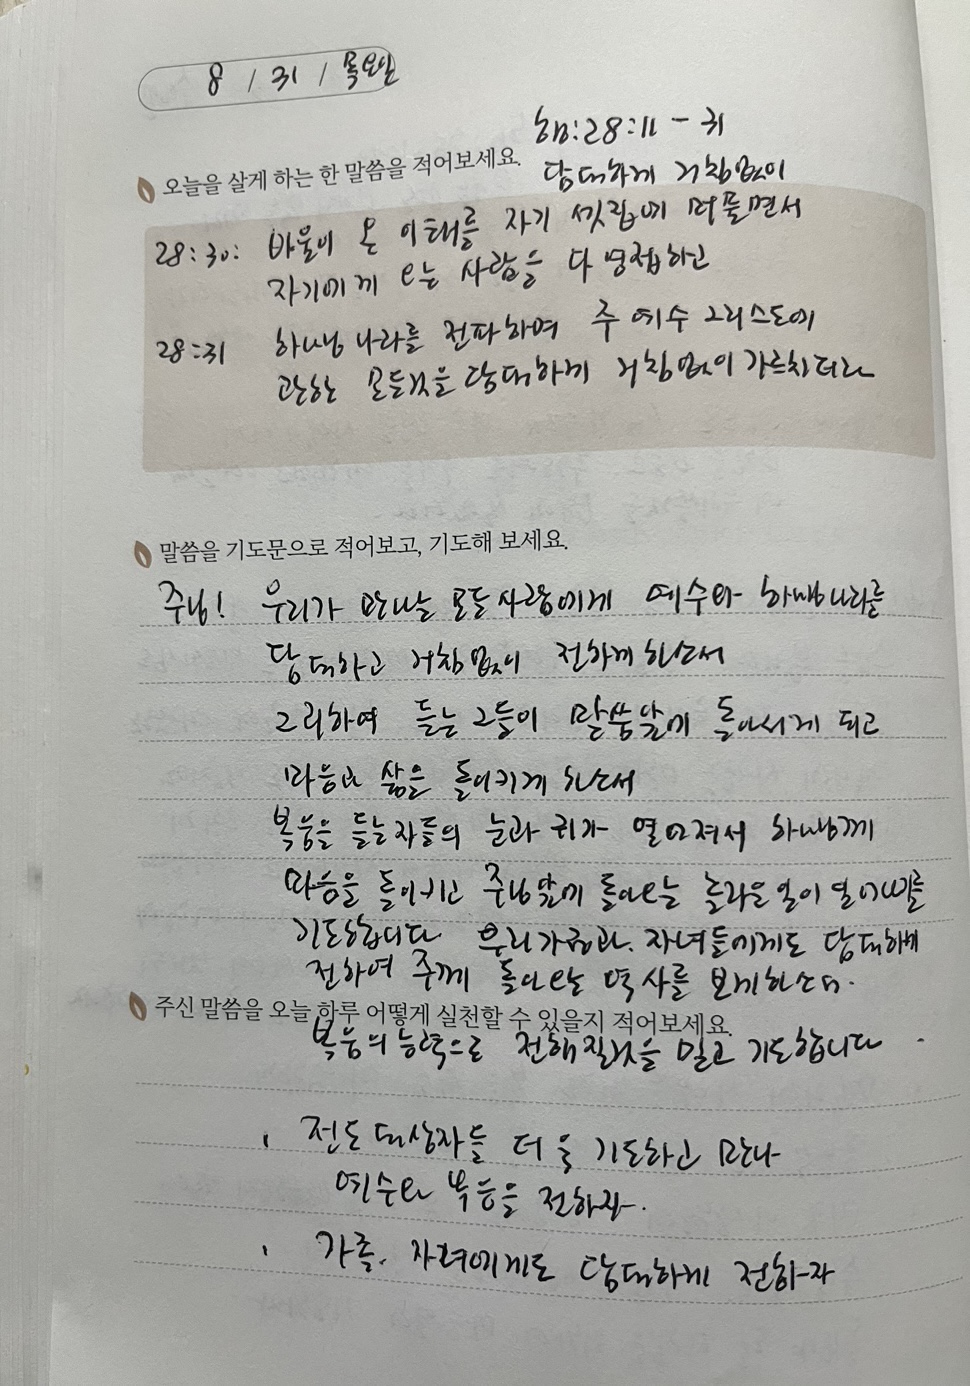 8 / 31 / 목요일
행:28:11 - 31
오늘을 살게 하는 한 말씀을 적어보세요.
담대하게 거침없이
28:30: 바울이 온 이태를 자기 셋집에 머물면서
자기에게 오는 사람을 다 영접하고
28:31 하나님 나라를 전파하며 주 예수 그리스도에
관한 모든것을 담대하게 거침없이 가르치더라
말씀을 기도문으로 적어보고, 기도해 보세요.
주님! 우리가 만나는 모든 사람에게 예수와 하나님나라를
담대하고 거침없이 전하게 하소서
그리하여 듣는 그들이 말씀앞에 돌아서게 되고
마음과 삶을 돌이키게 하소서
복음을 듣는자들의 눈과 귀가 열려져서 하나님께
마음을 돌이키고 주님앞에 돌아오는 놀라운 일이 일어나기를
기도합니다 우리가족과. 자녀들에게도 담대하게
전하여 주께 돌아오는 역사를 보게하소서.
주신 말씀을 오늘 하루 어떻게 실천할 수 있을지 적어보세요.
복음의 능력으로 전해질것을 믿고 기도합니다.
전도대상자들 더욱 기도하고 만나
예수와 복음을 전하자.
가족. 자녀에게도 담대하게 전하자